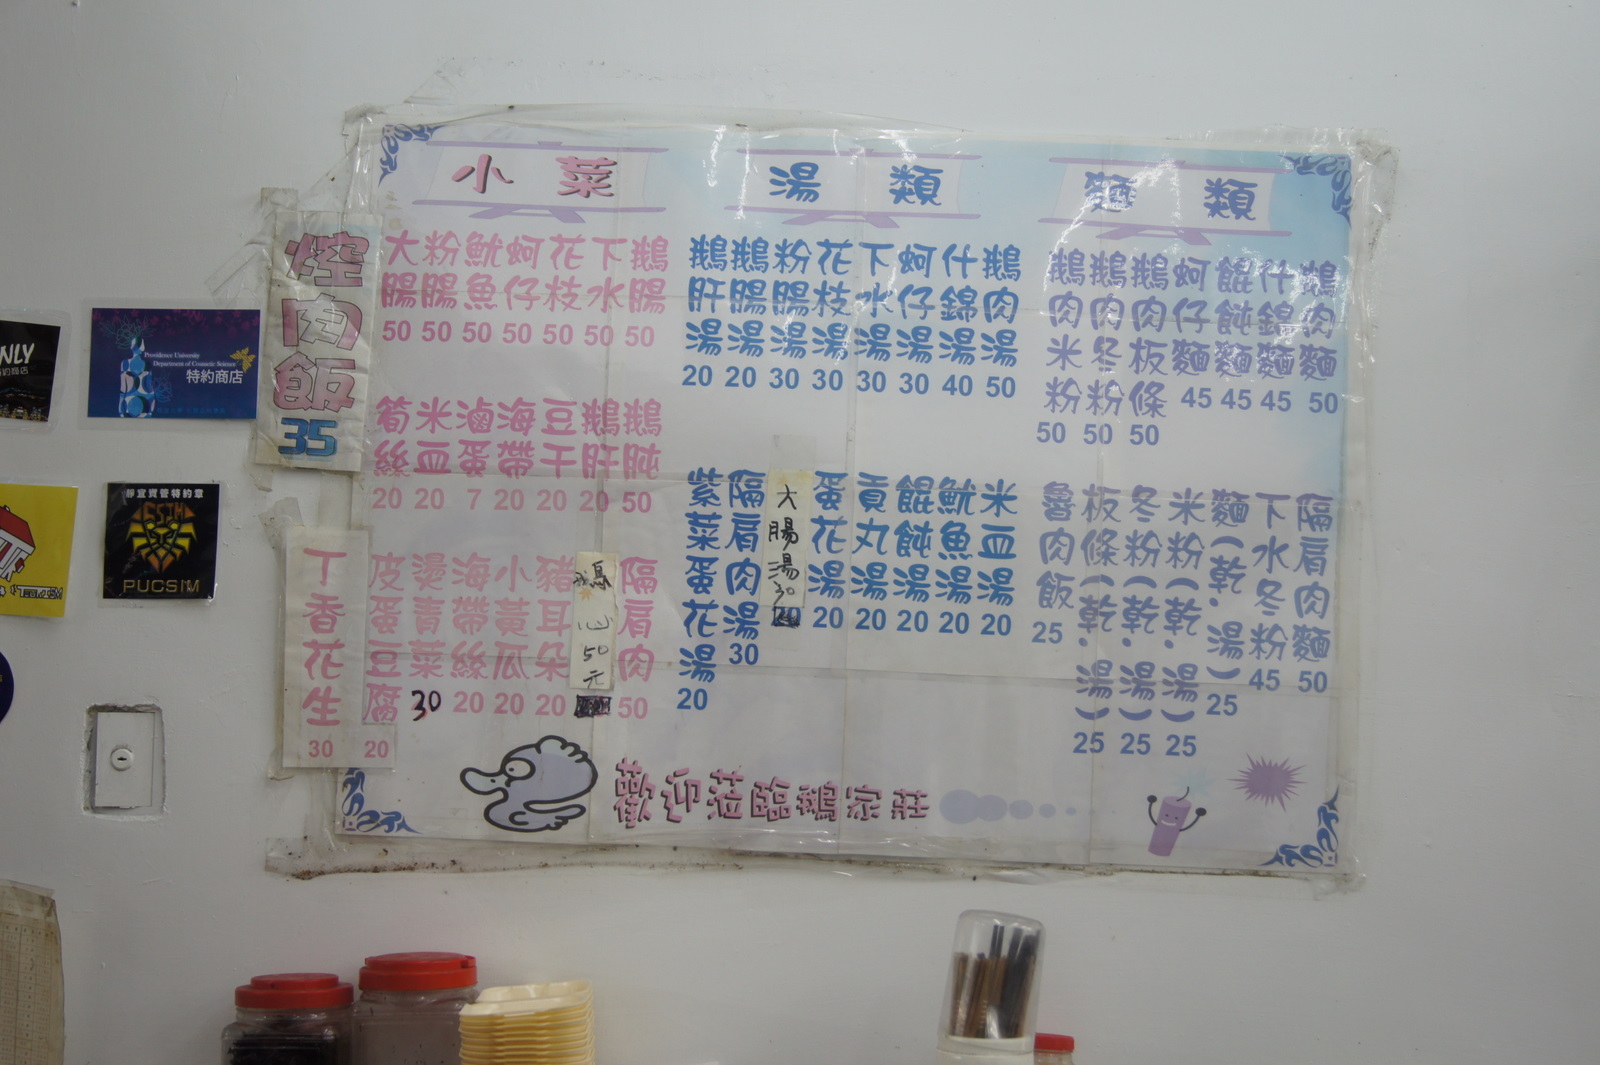 小菜
湯類
麵類
焢肉飯
35
鵝腸 50
下水 50
花枝 50
蚵仔 50
魷魚 50
粉腸 50
大腸 50
鵝肫 50
鵝肝 20
豆干 20
海帶 20
滷蛋 7
米血 20
筍絲 20
隔肩肉 50
鵝心50元
豬耳朵 20
小黃瓜 20
海帶絲 20
燙青菜 30
皮蛋豆腐 20
丁香花生 30
鵝肉湯 50
什錦湯 40
蚵仔湯 30
下水湯 30
花枝湯 30
粉腸湯 30
鵝腸湯 20
鵝肝湯 20
米血湯 20
魷魚湯 20
餛飩湯 20
貢丸湯 20
蛋花湯 20
大腸湯30
隔肩肉湯 30
紫菜蛋花湯 20
鵝肉麵 50
什錦麵 45
餛飩麵 45
蚵仔麵 45
鵝肉板條 50
鵝肉冬粉 50
鵝肉米粉 50
隔肩肉麵 50
下水冬粉 45
麵(乾.湯) 25
米粉(乾.湯) 25
冬粉(乾.湯) 25
板條(乾.湯) 25
魯肉飯 25
歡迎蒞臨鵝家莊
NLY
特約商店
Providence University
Department of Cosmetic Science
特約商店
靜宜資管特約章
CSIM
PUCSIM